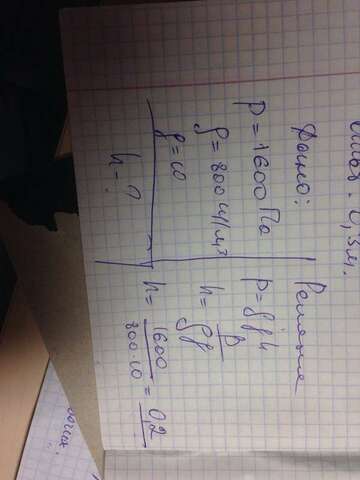 Ответ: 0,3м.
Дано:
P=1600Па
ρ=800кг/м³
g=10
h-?
Решение
p=ρgh
h=p/ρg
h=1600/800·10=0,2